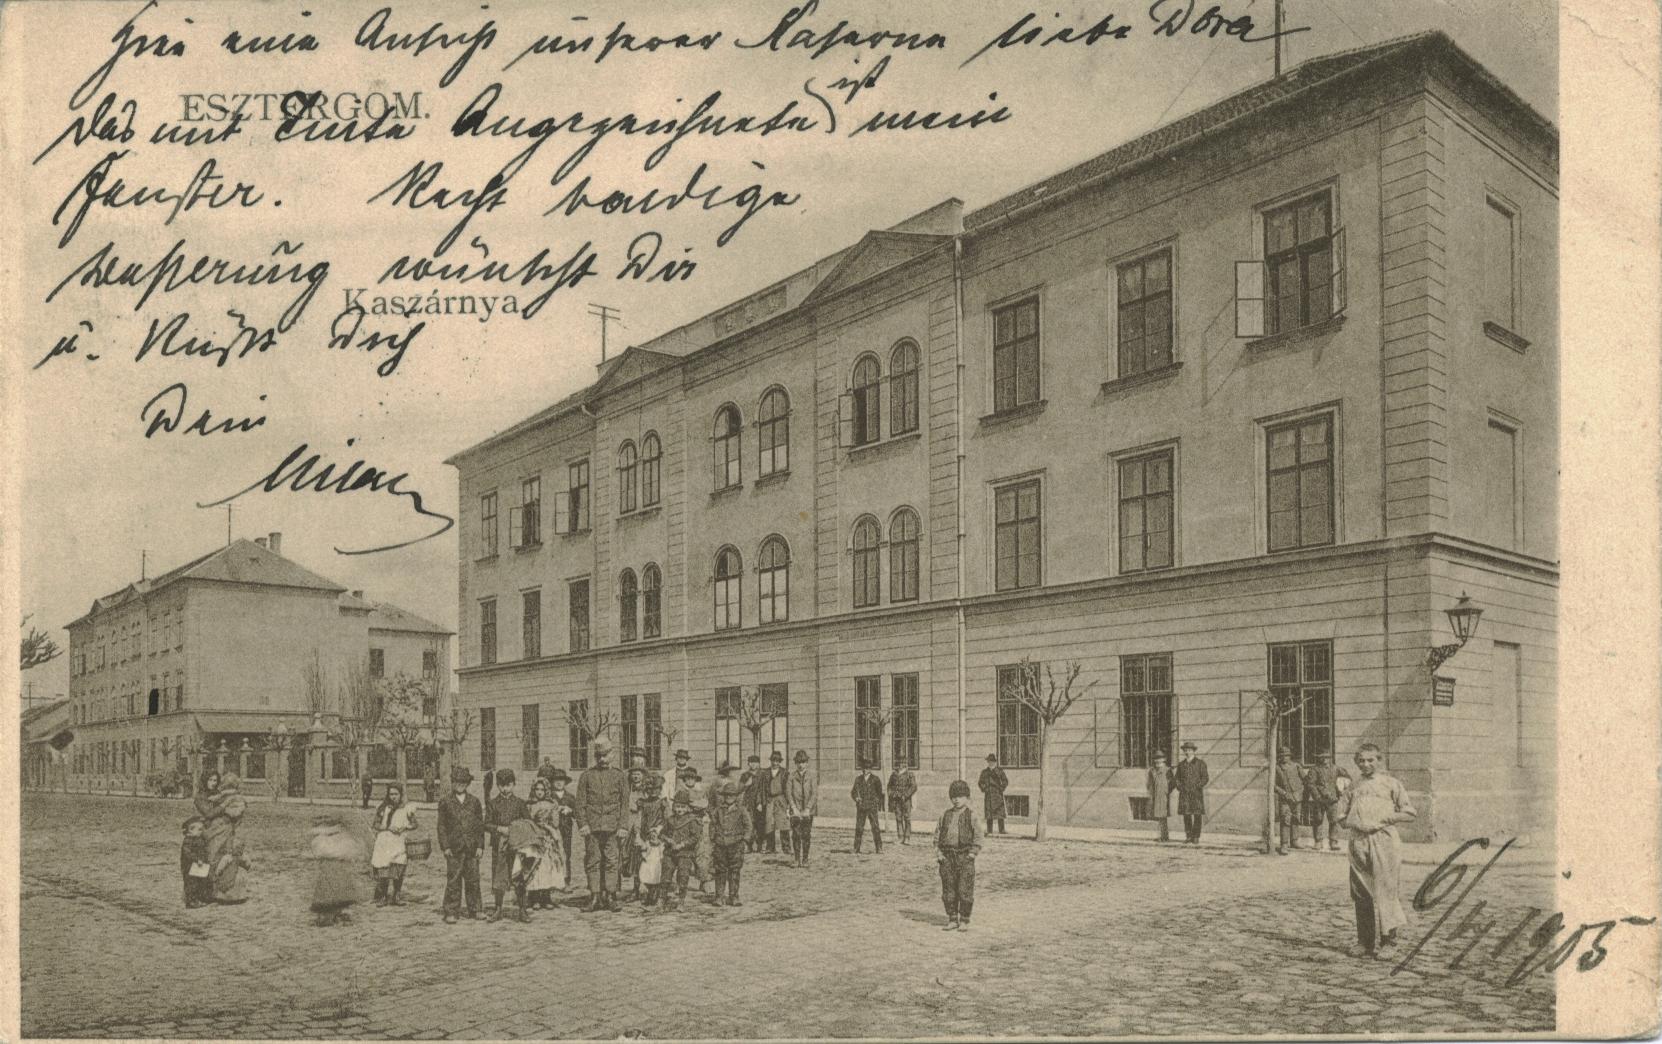 Hier eine Ansicht unserer Kaserne liebe Dora
ESZTERGOM.
Das mit Tinte Angezeichnete ist mein
Fenster. Recht baldige
Besserung wünscht Dir
Kaszárnya
u. Küsst Dich
Dein
Milan
6/IV 1905